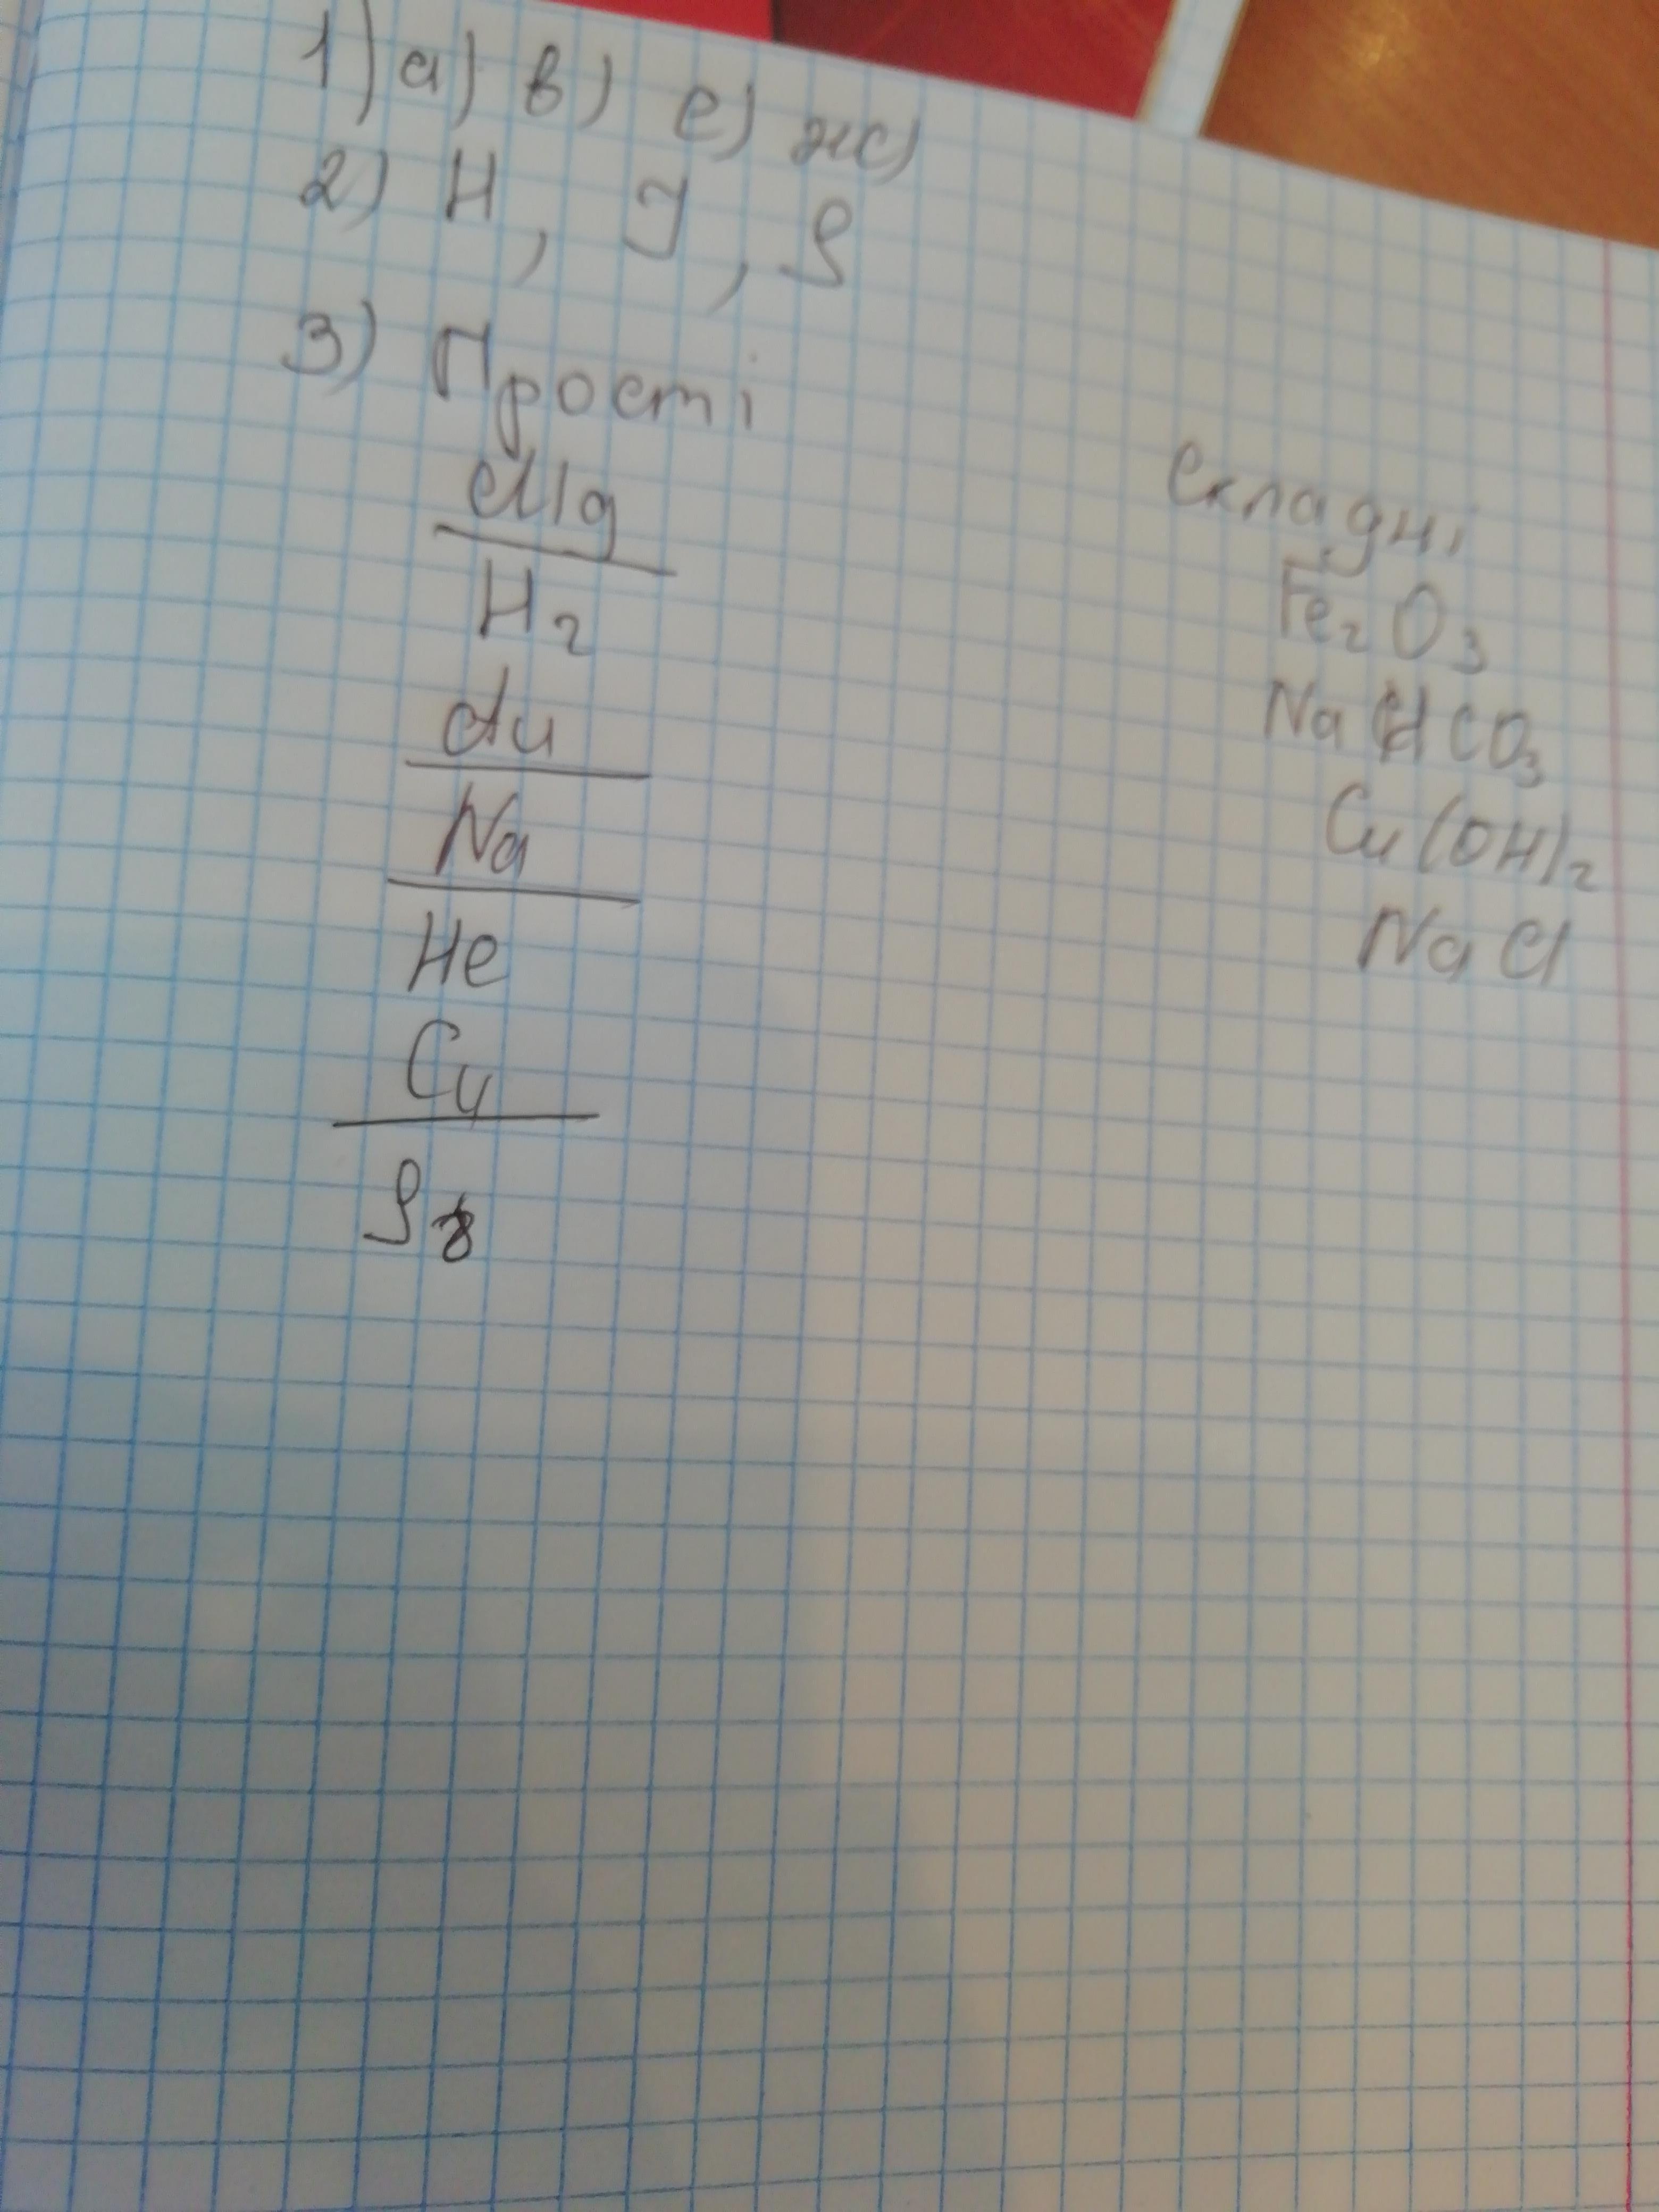 1) а) в) е) ж)
2) H, J, S
3) Прості
Mg
H₂
Au
Na
He
Cu
S₈
Складні
Fe₂O₃
NaHCO₃
Cu(OH)₂
NaCl